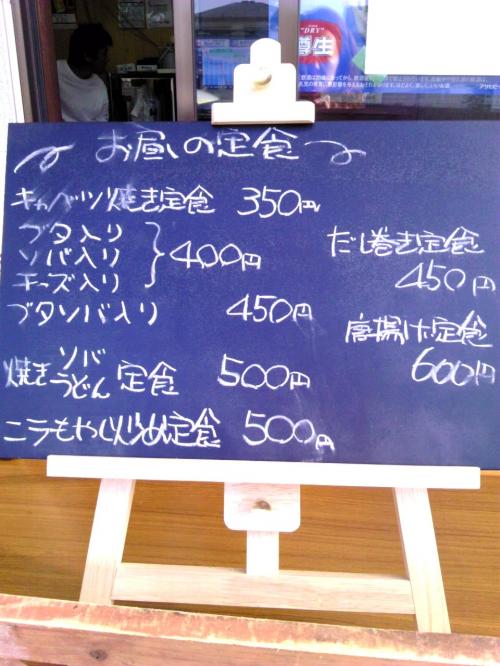 お昼の定食
キャベツ焼き定食 350円
ブタ入り
ソバ入り
チーズ入り
400円
ブタソバ入り 450円
焼き
ソバ
うどん
定食 500円
ニラもやし炒め定食 500円
だし巻き定食
450円
唐揚げ定食
600円
"DRY"
樽生